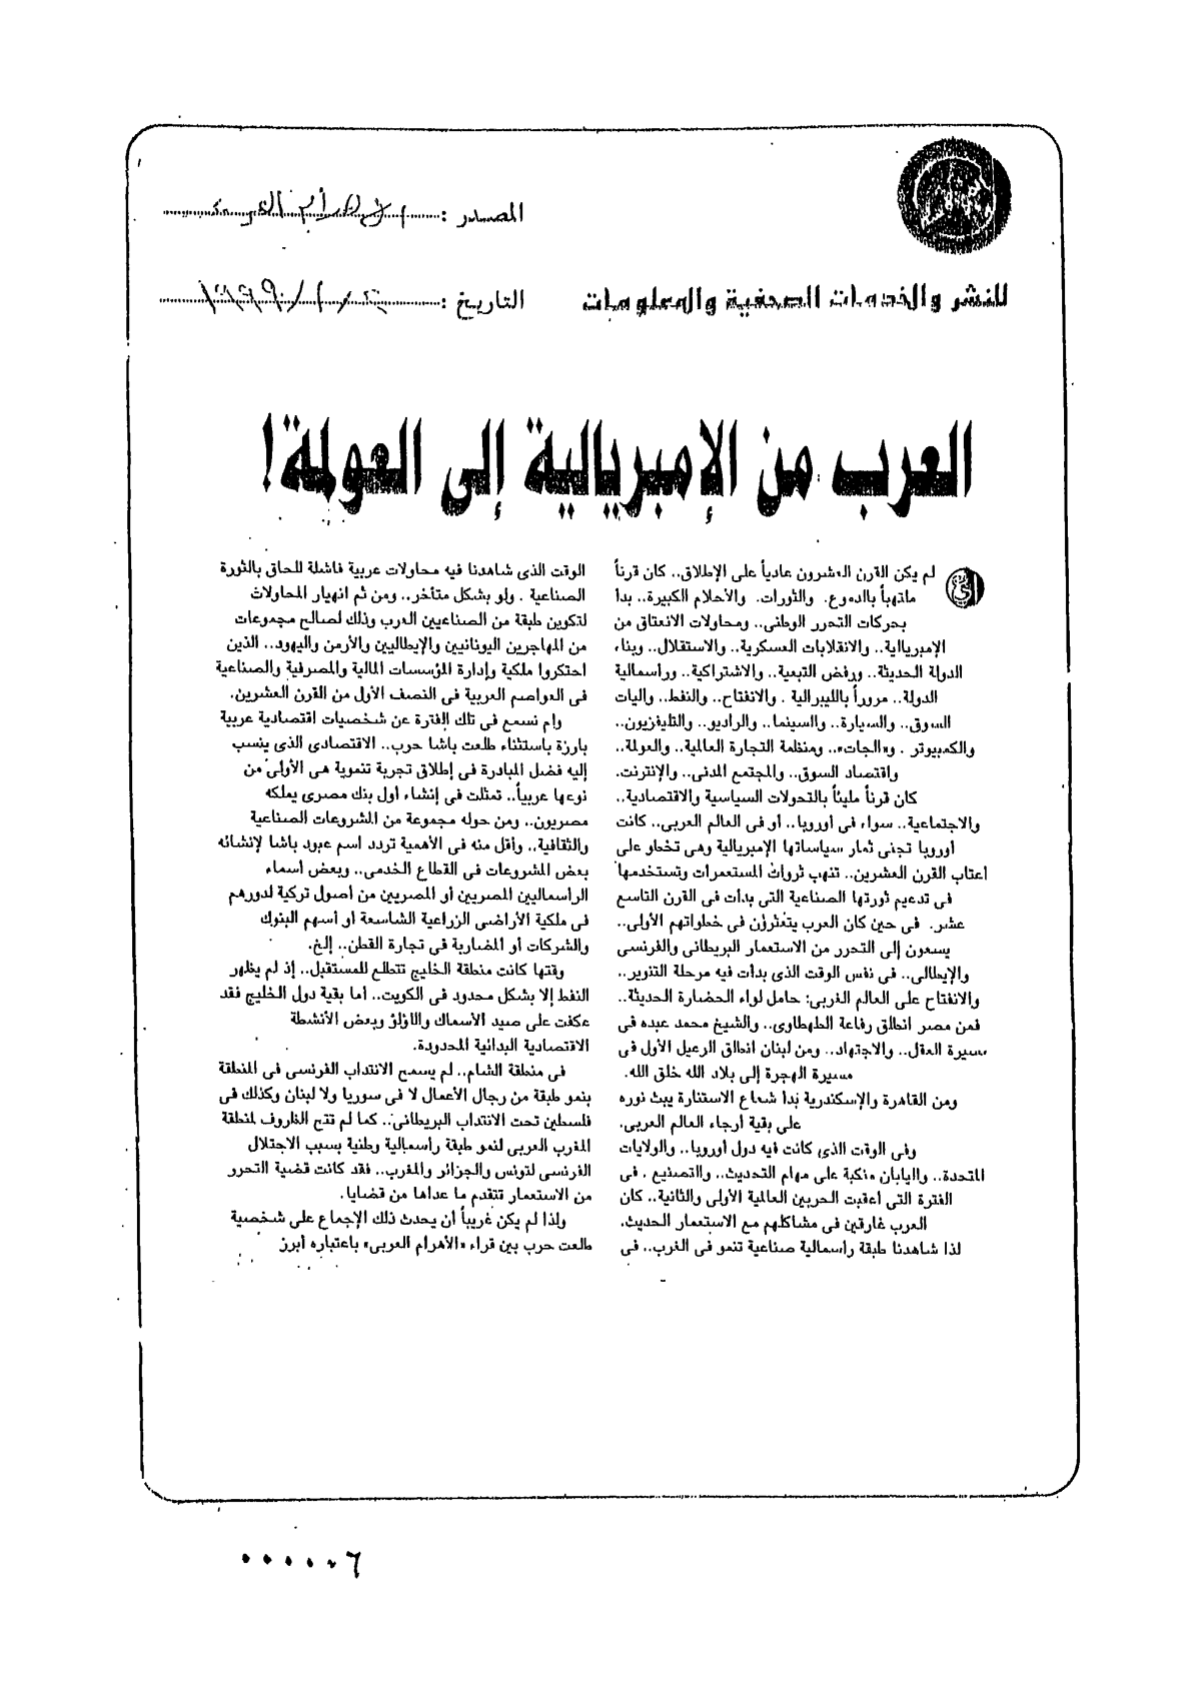 المصدر : الأهرام العربي
للنشر والخدمات الصحفية والمعلومات
التاريخ :
العرب من الإمبريالية إلى العولمة!
لم يكن القرن العشرون عادياً على الإطلاق.. كان قرناً
ملتهباً بالدموع. والثورات. والأحلام الكبيرة.. بدأ
بحركات التحرر الوطنى.. ومحاولات الانعتاق من
الإمبريالية.. والانقلابات العسكرية.. والاستقلال.. وبناء
الدولة الحديثة.. ورفض التبعية.. والاشتراكية.. ورأسمالية
الدولة.. مروراً بالليبرالية . والانفتاح.. والنفط.. وآليات
السوق.. والسيارة.. والسينما.. والراديو.. والتليفزيون..
والكمبيوتر . و«الجات».. ومنظمة التجارة العالمية.. والعولمة..
واقتصاد السوق.. والمجتمع المدنى.. والإنترنت.
كان قرناً مليئاً بالتحولات السياسية والاقتصادية..
والاجتماعية.. سواء فى أوروبا.. أو فى العالم العربى.. كانت
أوروبا تجنى ثمار سياساتها الإمبريالية وهى تخطو على
أعتاب القرن العشرين.. تنهب ثروات المستعمرات وتستخدمها
فى تدعيم ثورتها الصناعية التى بدأت فى القرن التاسع
عشر. فى حين كان العرب يتعثرون فى خطواتهم الأولى..
يسعون إلى التحرر من الاستعمار البريطانى والفرنسى
والإيطالى.. فى نفس الوقت الذى بدأت فيه مرحلة التنوير..
والانفتاح على العالم الغربى: حامل لواء الحضارة الحديثة..
فمن مصر انطلق رفاعة الطهطاوى.. والشيخ محمد عبده فى
مسيرة العقل.. والاجتهاد.. ومن لبنان انطلق الرعيل الأول فى
مسيرة الهجرة إلى بلاد الله خلق الله.
ومن القاهرة والإسكندرية بدأ شعاع الاستنارة يبث نوره
على بقية أرجاء العالم العربى.
وفى الوقت الذى كانت فيه دول أوروبا.. والولايات
المتحدة.. واليابان منكبة على مهام التحديث.. والتصنيع . فى
الفترة التى أعقبت الحربين العالمية الأولى والثانية.. كان
العرب غارقين فى مشاكلهم مع الاستعمار الحديث.
لذا شاهدنا طبقة رأسمالية صناعية تنمو فى الغرب.. فى
الوقت الذى شاهدنا فيه محاولات عربية فاشلة للحاق بالثورة
الصناعية . ولو بشكل متأخر.. ومن ثم انهيار المحاولات
لتكوين طبقة من الصناعيين العرب وذلك لصالح مجموعات
من المهاجرين اليونانيين والإيطاليين والأرمن واليهود.. الذين
احتكروا ملكية وإدارة المؤسسات المالية والمصرفية والصناعية
فى العواصم العربية فى النصف الأول من القرن العشرين.
ولم نسمع فى تلك الفترة عن شخصيات اقتصادية عربية
بارزة باستثناء طلعت باشا حرب.. الاقتصادى الذى ينسب
إليه فضل المبادرة فى إطلاق تجربة تنموية هى الأولى من
نوعها عربياً.. تمثلت فى إنشاء أول بنك مصرى يملكه
مصريون.. ومن حوله مجموعة من المشروعات الصناعية
والثقافية.. وأقل منه فى الأهمية تردد اسم عبود باشا لإنشائه
بعض المشروعات فى القطاع الخدمى.. وبعض أسماء
الرأسماليين المصريين أو المصريين من أصول تركية لدورهم
فى ملكية الأراضى الزراعية الشاسعة أو أسهم البنوك
والشركات أو المضاربة فى تجارة القطن.. إلخ.
وقتها كانت منطقة الخليج تتطلع للمستقبل.. إذ لم يظهر
النفط إلا بشكل محدود فى الكويت.. أما بقية دول الخليج فقد
عكفت على صيد الأسماك واللؤلؤ وبعض الأنشطة
الاقتصادية البدائية المحدودة.
فى منطقة الشام.. لم يسمح الانتداب الفرنسى فى المنطقة
بنمو طبقة من رجال الأعمال لا فى سوريا ولا لبنان وكذلك فى
فلسطين تحت الانتداب البريطانى.. كما لم تتح الظروف لمنطقة
المغرب العربى لنمو طبقة رأسمالية وطنية بسبب الاحتلال
الفرنسى لتونس والجزائر والمغرب.. فقد كانت قضية التحرر
من الاستعمار تتقدم ما عداها من قضايا.
ولذا لم يكن غريباً أن يحدث ذلك الإجماع على شخصية
طلعت حرب بين قراء «الأهرام العربى» باعتباره أبرز
٠٠٠٠٠٠٦